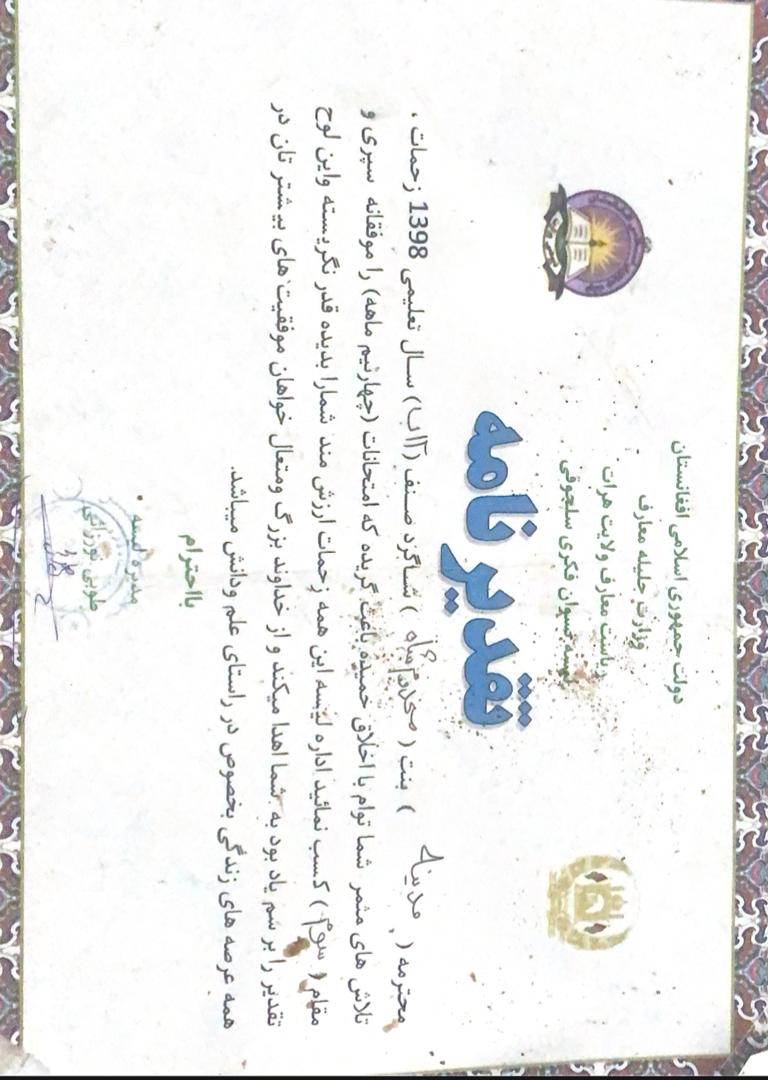 دولت جمهوری اسلامی افغانستان
وزارت جلیله معارف
ریاست معارف ولایت هرات
لیسه نسوان فکری سلجوقی
تقدیر نامه
محترمه ( مدینه ) بنت ( محمد ) شاگرد صنف (۱۱اب) سال تعلیمی 1398 زحمات ،
تلاش های مثمر شما توام با اخلاق حمیده باعث گریده که امتحانات (چهارنیم ماهه) را موفقانه سپری و
مقام ( سوم ) کسب نمائید اداره لیسه این همه زحمات ارزش مند شمارا بدیده قدر نگریسته واین لوح
تقدیر را بر سم یاد بود به شما اهدا میکند و از خداوند بزرگ ومتعال خواهان موفقیت های بیشتر تان در
همه عرصه های زندگی بخصوص در راستای علم ودانش میباشد.
بااحترام
مدیره لیسه
طوبی نورزائی